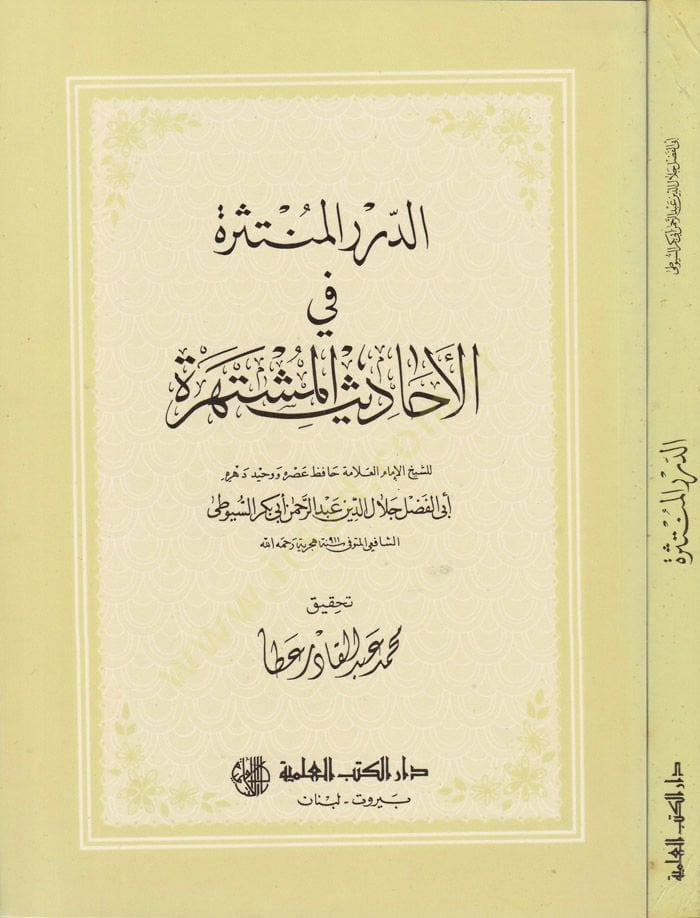 الدرر المنتثرة
في
الأحاديث المشتهرة
للشيخ الإمام العلامة حافظ عصره ووحيد دهره
أبي الفضل جلال الدين عبد الرحمن أبي بكر السيوطي
الشافعي المتوفى سنة ٩١١ هجرية رحمه الله
تحقيق
محمد عبد القادر عطا
دار الكتب العلمية
بيروت - لبنان
أبي الفضل جلال الدين عبد الرحمن أبي بكر السيوطي
الدرر المنتثرة
دار الكتب العلمية